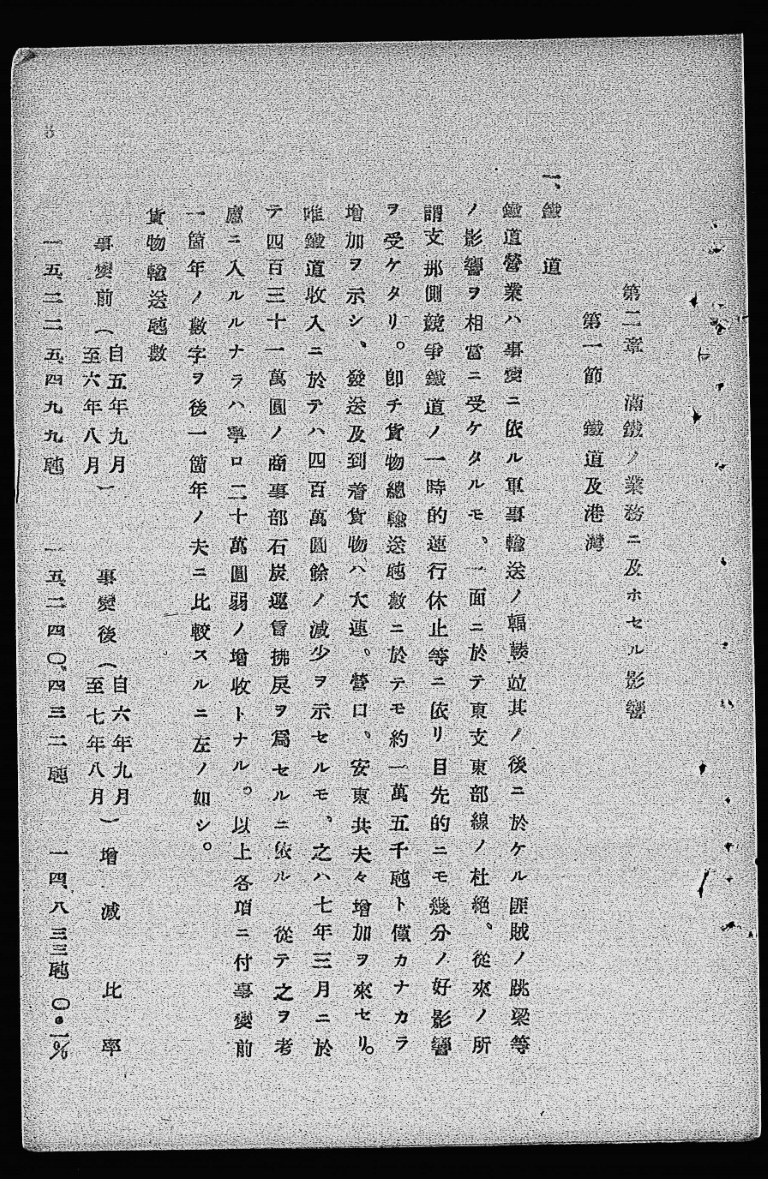 第二章　満鐵ノ業務ニ及ホセル影響
第一節　鐵道及港灣
一、鐵道
鐵道營業ハ事變ニ依ル軍事輸送ノ輻輳竝其ノ後ニ於ケル匪賊ノ跳梁等
ノ影響ヲ相當ニ受ケタルモ、一面ニ於テ東支東部線ノ杜絶、從來ノ所
謂支那側競爭鐵道ノ一時的運行休止等ニ依リ目先的ニモ幾分ノ好影響
ヲ受ケタリ。卽チ貨物總輸送噸數ニ於テモ約一萬五千噸ト僅カナカラ
增加ヲ示シ、發送及到着貨物ハ大連。營口、安東共夫々增加ヲ來セリ。
唯鐵道收入ニ於テハ四百萬圓餘ノ減少ヲ示セルモ、之ハ七年三月ニ於
テ四百三十一萬圓ノ商事部石炭運賃拂戻ヲ爲セルニ依ル　從テ之ヲ考
慮ニ入ルルナラハ寧ロ二十萬圓弱ノ增收トナル。以上各項ニ付事變前
一箇年ノ數字ヲ後一箇年ノ夫ニ比較スルニ左ノ如シ。
貨物輸送噸數
事變前（自五年九月至六年八月）　事變後（自六年九月至七年八月）增減　比率
一五、二二五、四九九噸　一五、二四〇、四三二噸　一四、八三三噸　〇。一%